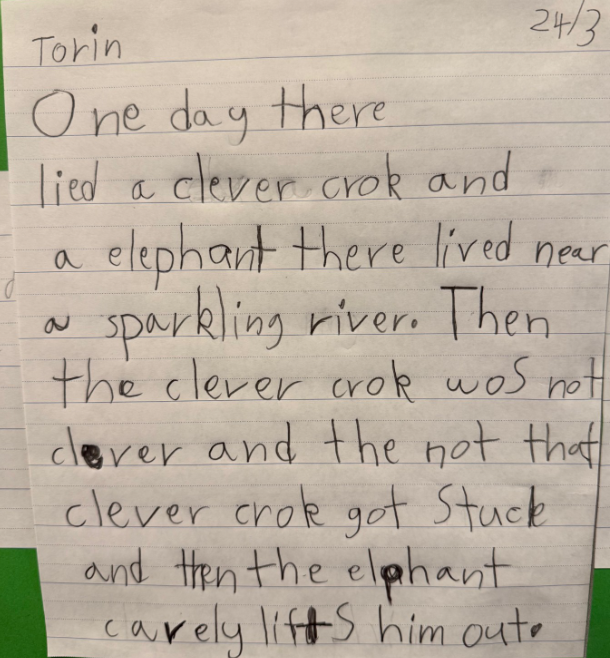 24/3
Torin
One day there
lied a clever crok and
a elephant there lived near
a sparkling river. Then
the clever crok wos not
clever and the not that
clever crok got Stuck
and then the elphant
carely liftS him out.